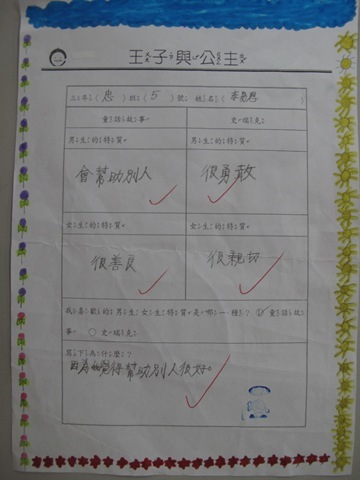 王子與公主
三年(忠)班(5)號 姓名(李
童話故事 史瑞克
男生的特質。 男生的特質。
會幫助別人 很勇敢
女生的特質。 女生的特質。
很善良 很親切
我喜歡的男生女生特質是哪一種? 童話故
事。 ○史瑞克
寫下為什麼?
因為 覺得幫助別人很好。